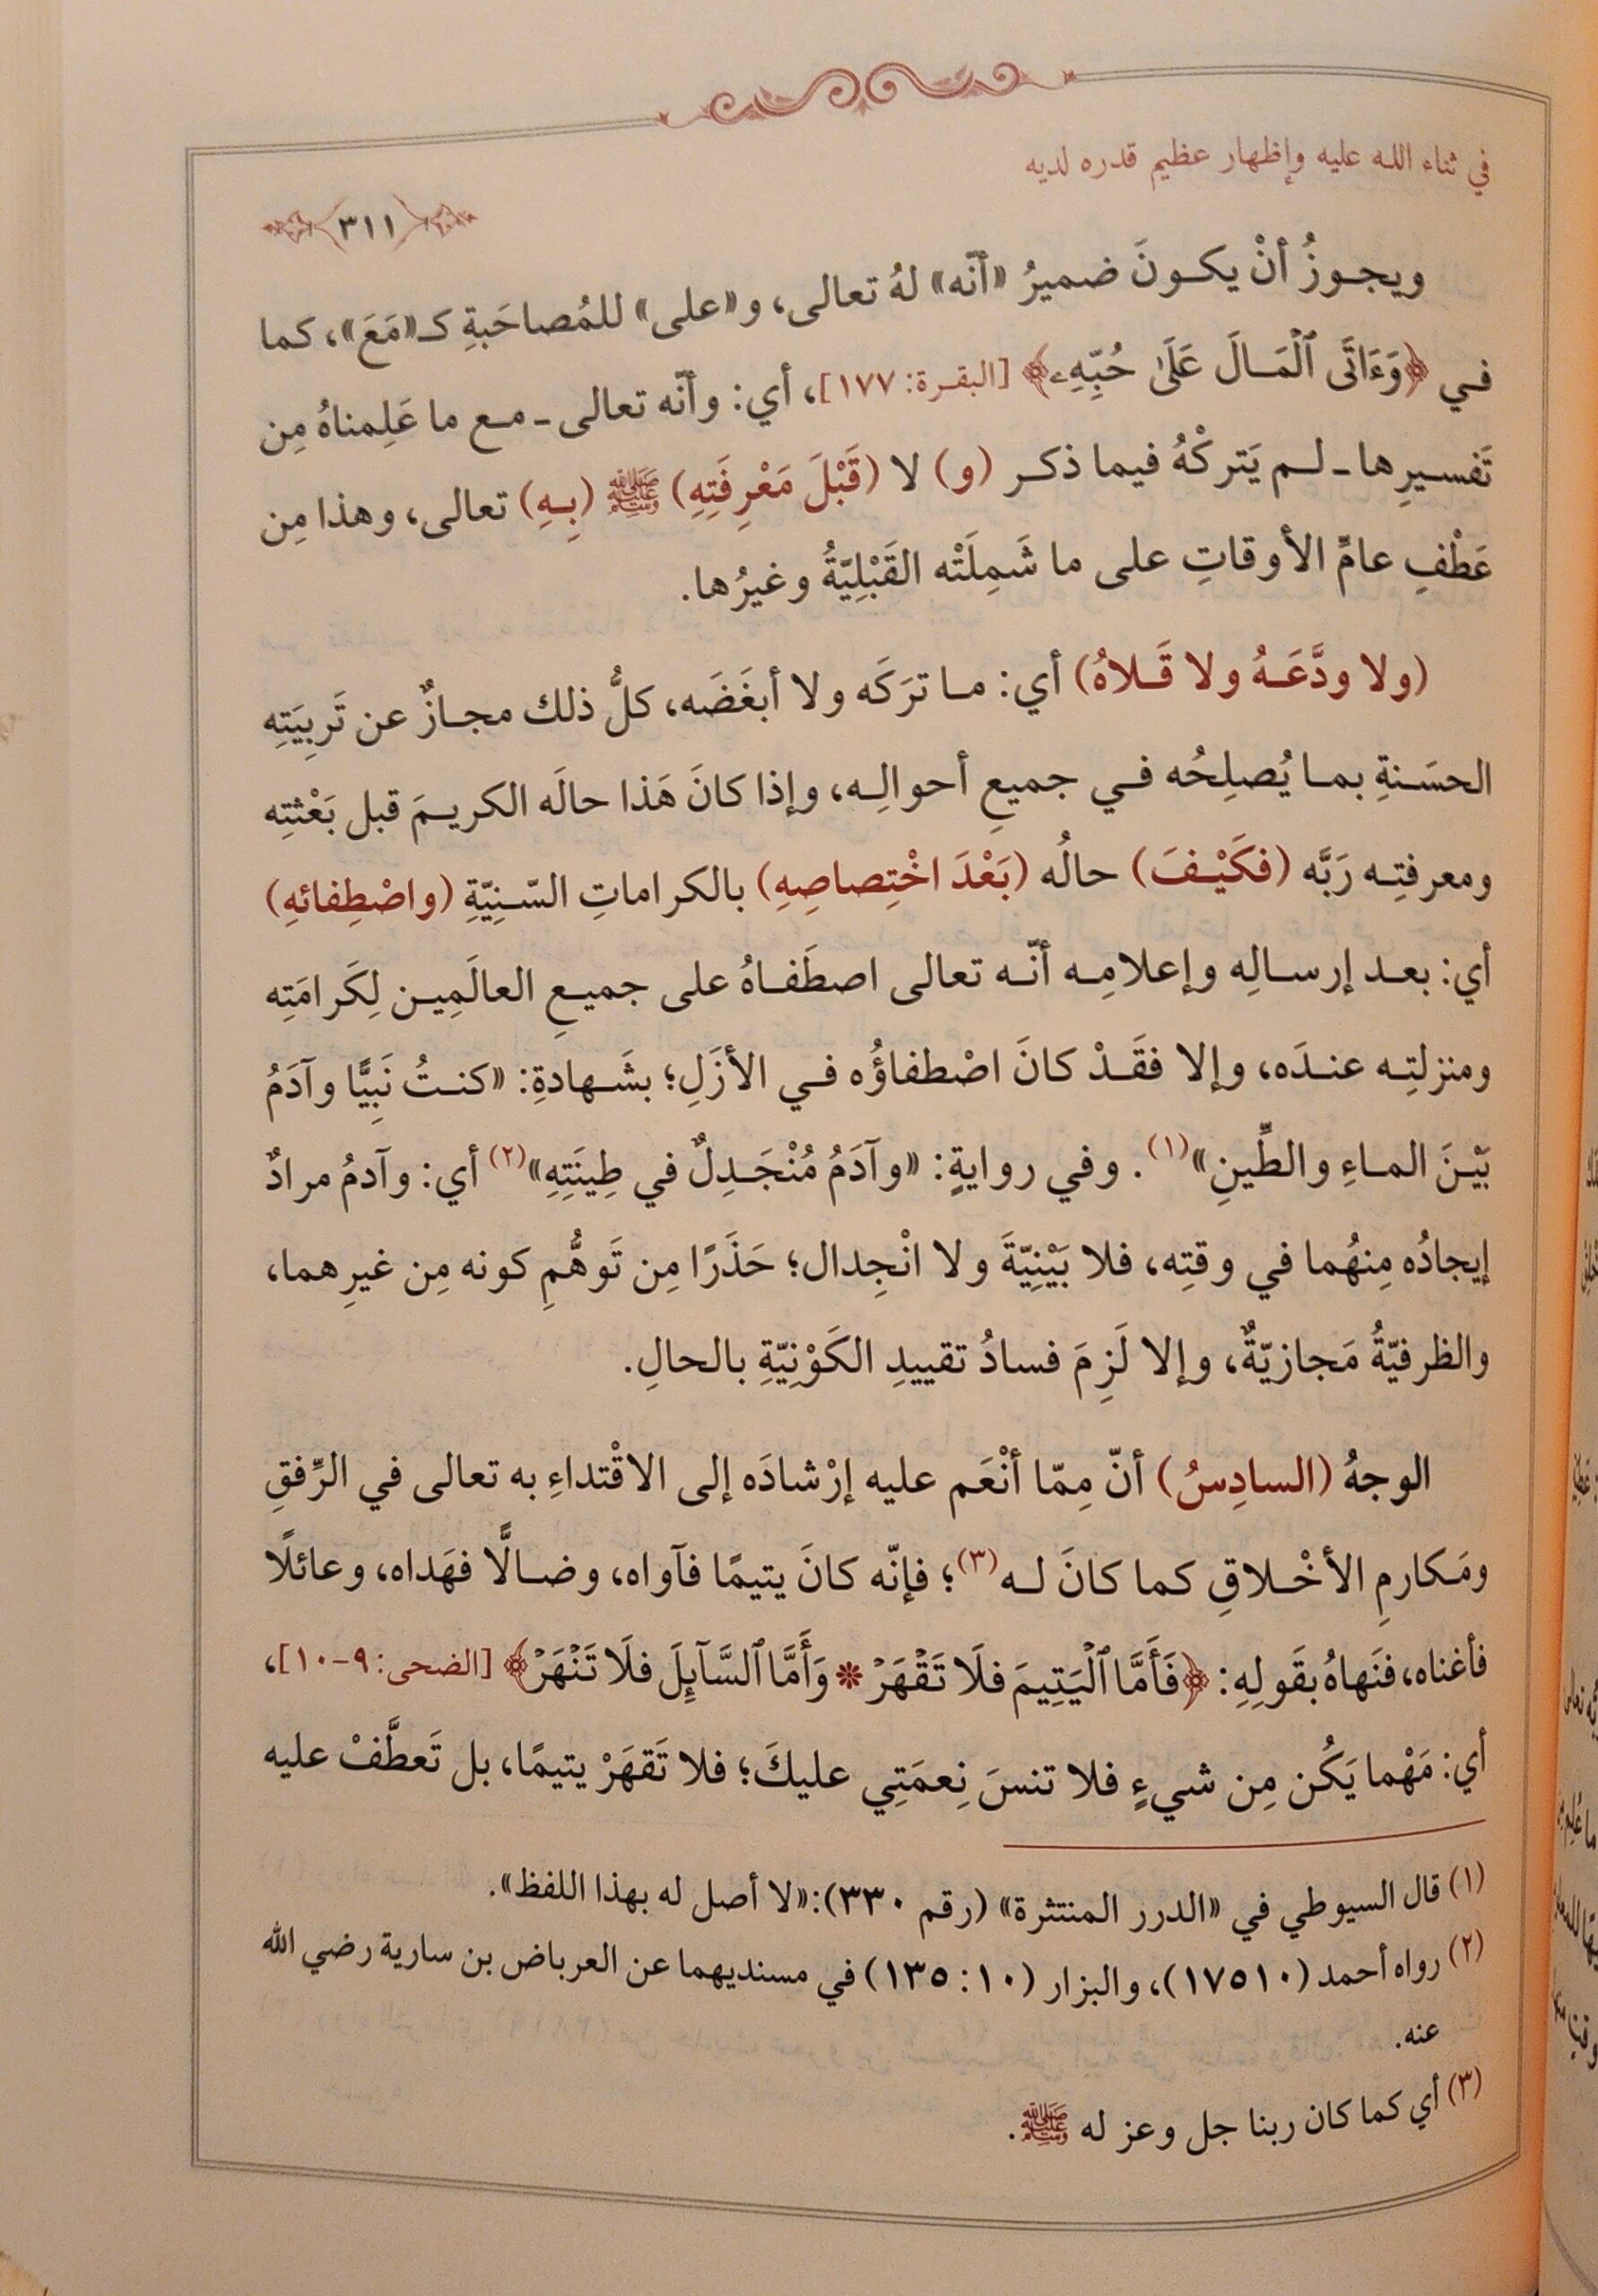 في ثناء الله عليه وإظهار عظيم قدره لديه
٣١١
ويجوزُ أنْ يكونَ ضميرُ «أنّه» لهُ تعالى، و«على» للمُصاحَبةِ كـ«مَعَ»، كما
في ﴿وَءَاتَى ٱلْمَالَ عَلَىٰ حُبِّهِۦ﴾ [البقرة: ١٧٧]، أي: وأنّه تعالى ـ مع ما عَلِمناهُ مِن
تَفسيرِها ـ لم يَتركْهُ فيما ذكر (و) لا (قَبْلَ مَعْرِفَتِهِ) ﷺ (بِهِ) تعالى، وهذا مِن
عَطْفِ عامِّ الأوقاتِ على ما شَمِلَتْه القَبْلِيّةُ وغيرُها.
(ولا ودَّعَهُ ولا قَلاهُ) أي: ما ترَكَه ولا أبغَضَه، كلُّ ذلك مجازٌ عن تَربِيَتِه
الحسَنةِ بما يُصلِحُه في جميعِ أحوالِه، وإذا كانَ هَذا حالَه الكريمَ قبل بَعْثتِه
ومعرفتِه رَبَّه (فكَيْفَ) حالُه (بَعْدَ اخْتِصاصِهِ) بالكراماتِ السّنِيّةِ (واصْطِفائهِ)
أي: بعد إرسالِه وإعلامِه أنّه تعالى اصطَفاهُ على جميعِ العالَمِين لِكَرامَتِه
ومنزلتِه عندَه، وإلا فقَدْ كانَ اصْطفاؤُه في الأزَلِ؛ بشَهادةِ: «كنتُ نَبِيًّا وآدَمُ
بَيْنَ الماءِ والطِّينِ»(١). وفي روايةٍ: «وآدَمُ مُنْجَدِلٌ في طِينَتِهِ»(٢) أي: وآدمُ مرادٌ
إيجادُه مِنهُما في وقتِه، فلا بَيْنِيّةَ ولا انْجِدال؛ حَذَرًا مِن تَوهُّمِ كونه مِن غيرِهما،
والظرفيّةُ مَجازيّةٌ، وإلا لَزِمَ فسادُ تقييدِ الكَوْنِيّةِ بالحالِ.
الوجهُ (السادِسُ) أنّ مِمّا أنْعَم عليه إرْشادَه إلى الاقْتداءِ به تعالى في الرِّفقِ
ومَكارمِ الأخْلاقِ كما كانَ له(٣)؛ فإنّه كانَ يتيمًا فآواه، وضالًّا فهَداه، وعائلًا
فأغناه، فنَهاهُ بقَولِهِ: ﴿فَأَمَّا ٱلْيَتِيمَ فلَا تَقْهَرْ * وَأَمَّا ٱلسَّآئِلَ فلَا تَنْهَرْ﴾ [الضحى: ٩-١٠]،
أي: مَهْما يَكُن مِن شيءٍ فلا تنسَ نِعمَتِي عليكَ؛ فلا تَقهَرْ يتيمًا، بل تَعطَّفْ عليه
(١) قال السيوطي في «الدرر المنتثرة» (رقم ٣٣٠): «لا أصل له بهذا اللفظ».
(٢) رواه أحمد (١٧٥١٠)، والبزار (١٠: ١٣٥) في مسنديهما عن العرباض بن سارية رضي الله
عنه.
(٣) أي كما كان ربنا جل وعز له ﷺ.